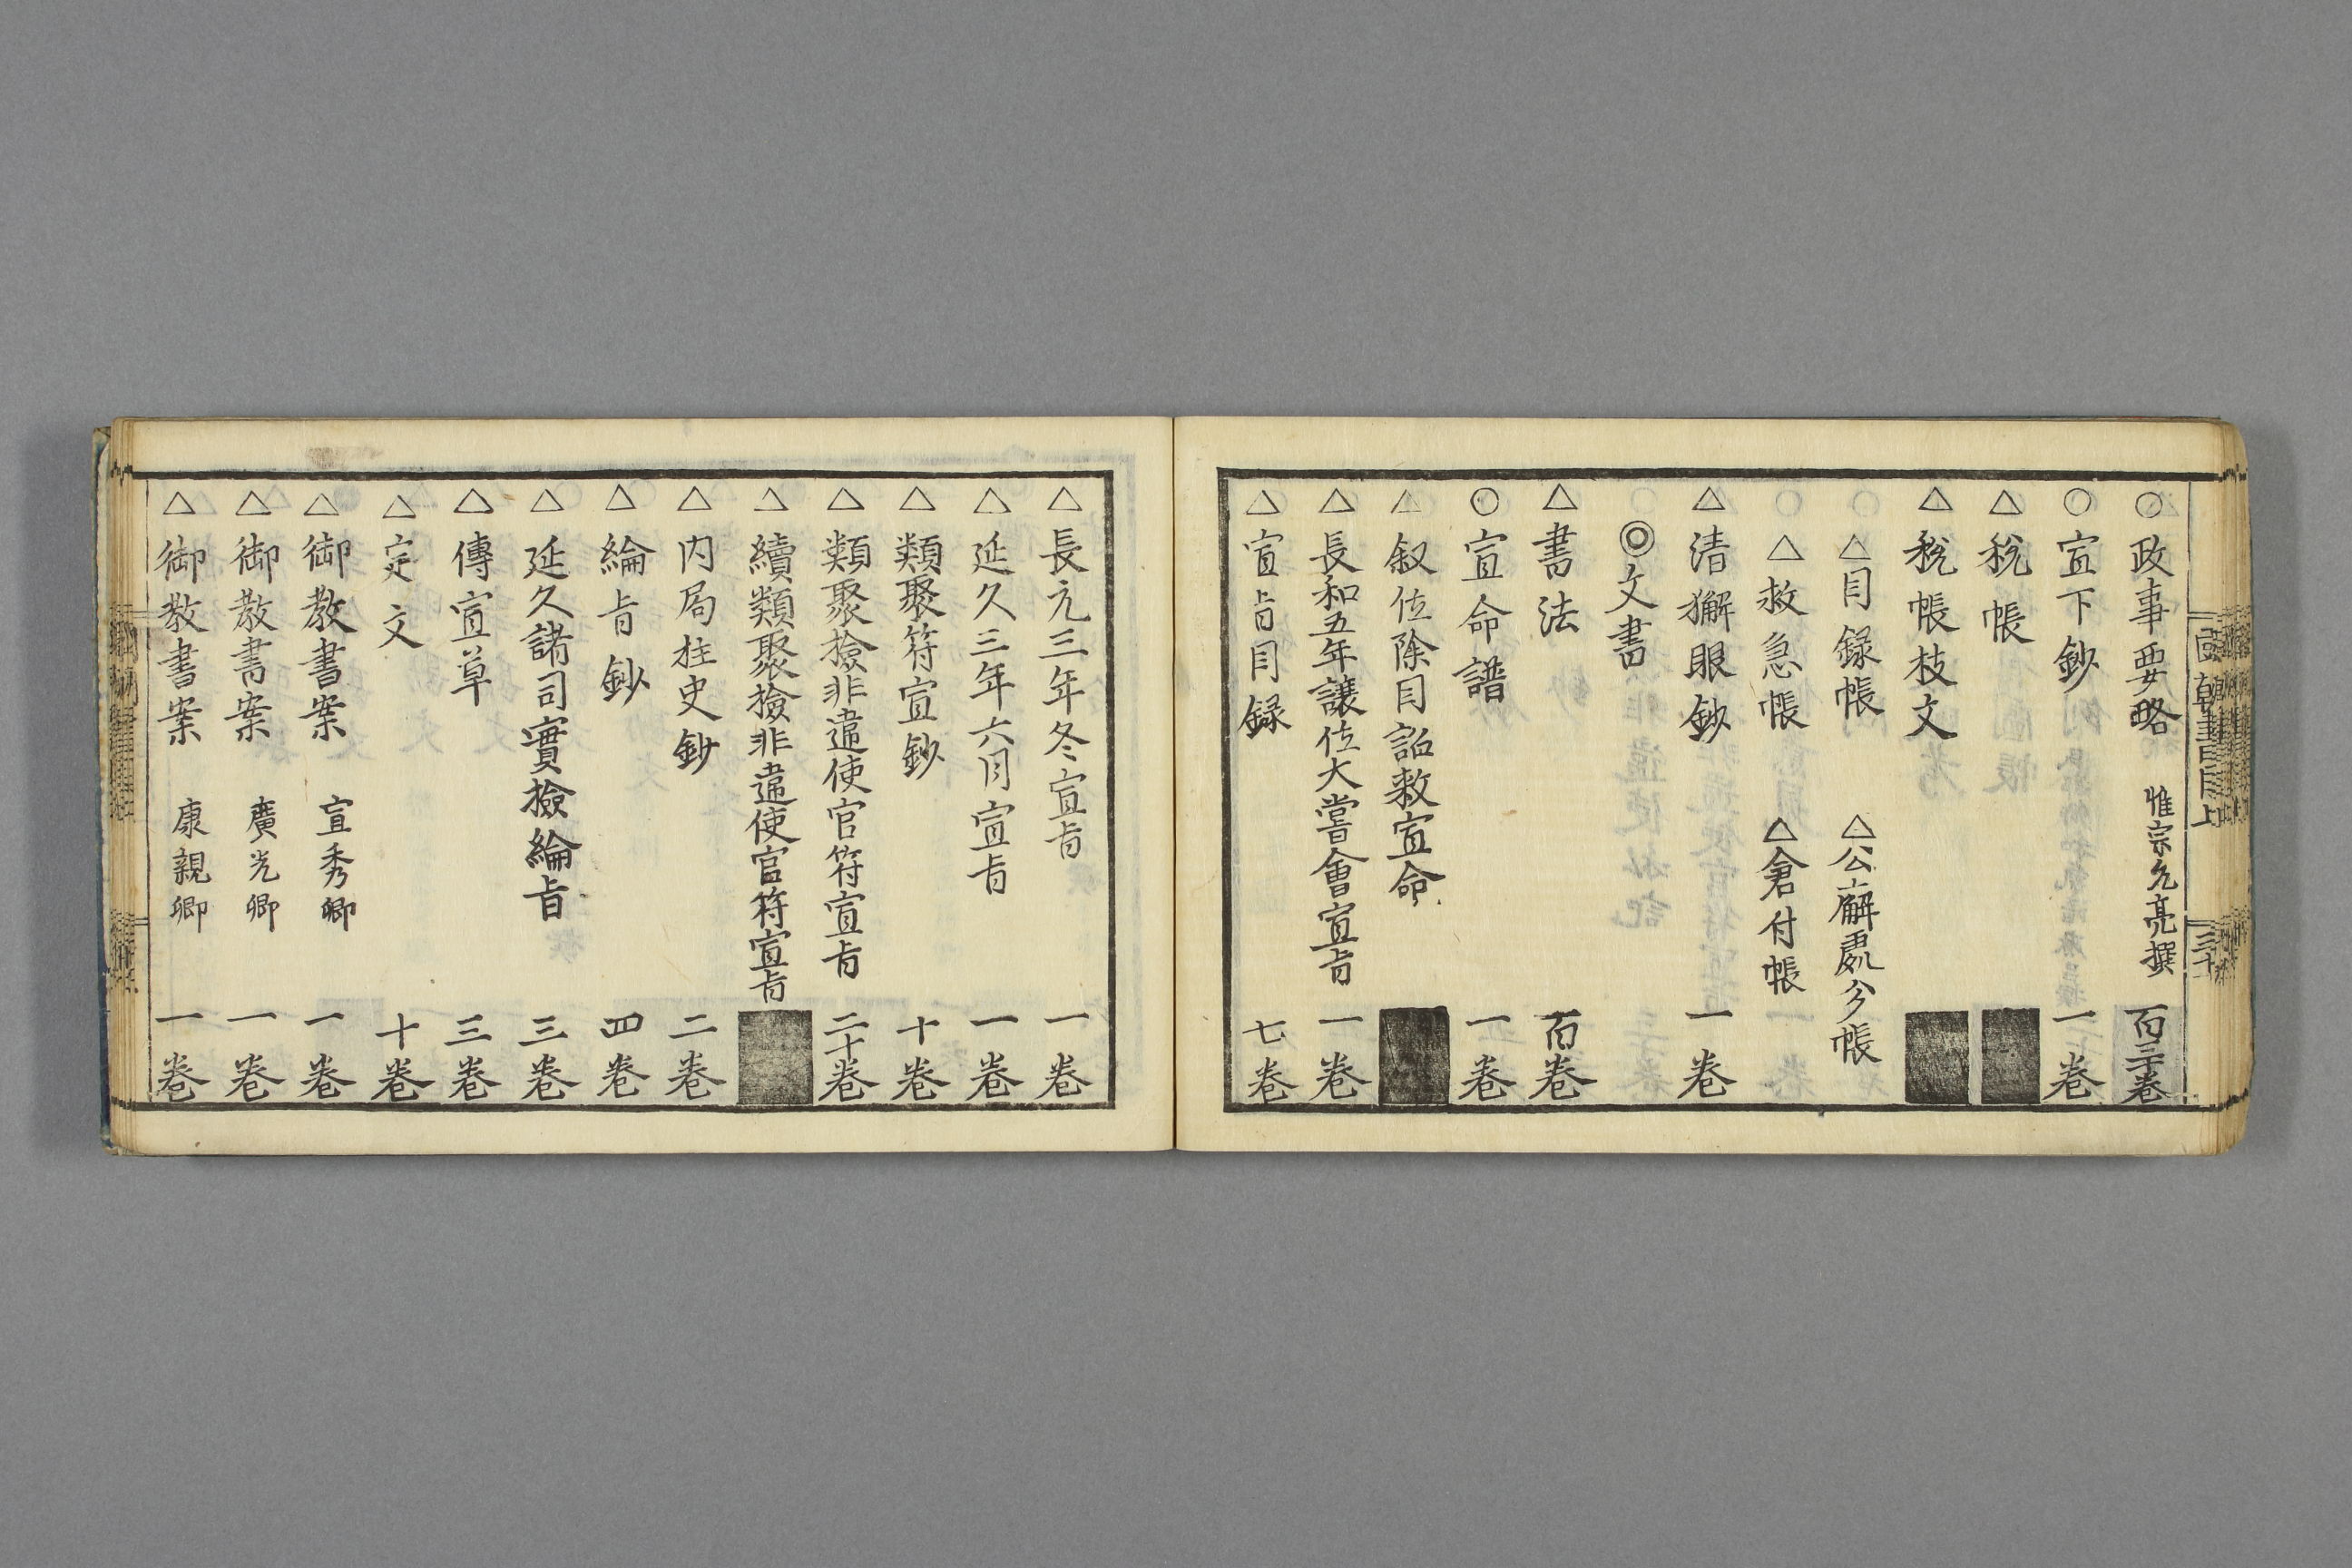 國朝書目上 三十
○政事要略 惟宗允亮撰 百三十卷
○宣下鈔 一卷
△税帳
△税帳枝文
△目録帳 △公廨處分帳
△救急帳 △倉付帳
△清獬眼鈔 一卷
◎文書
△書法 百卷
○宣命譜 一卷
△叙位除目詔敕宣命
△長和五年讓位大嘗會宣旨 一卷
△宣旨目録 七卷
△長元三年冬宣旨 一卷
△延久三年六月宣旨 一卷
△類聚符宣鈔 十卷
△類聚撿非違使官符宣旨 二十卷
△續類聚撿非違使官符宣旨
△内局柱史鈔 二卷
△綸旨鈔 四卷
△延久諸司實撿綸旨 三卷
△傳宣草 三卷
△定文 十卷
△御教書案 宣秀卿 一卷
△御教書案 廣光卿 一卷
△御教書案 康親卿 一卷